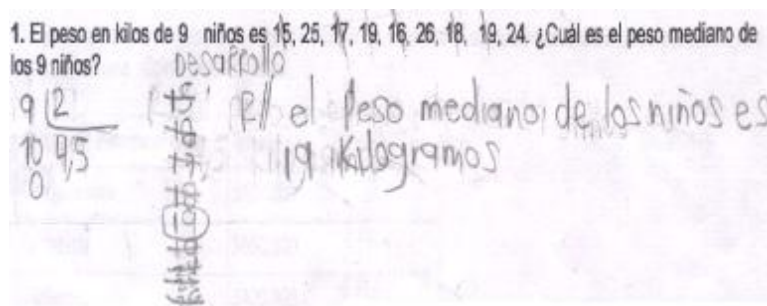 1. El peso en kilos de 9 niños es 15, 25, 17, 19, 16, 26, 18, 19, 24. ¿Cuál es el peso mediano de
los 9 niños?
Desarrollo
9 2
10 4,5
0
R// el peso mediano de los niños es
19 kilogramos